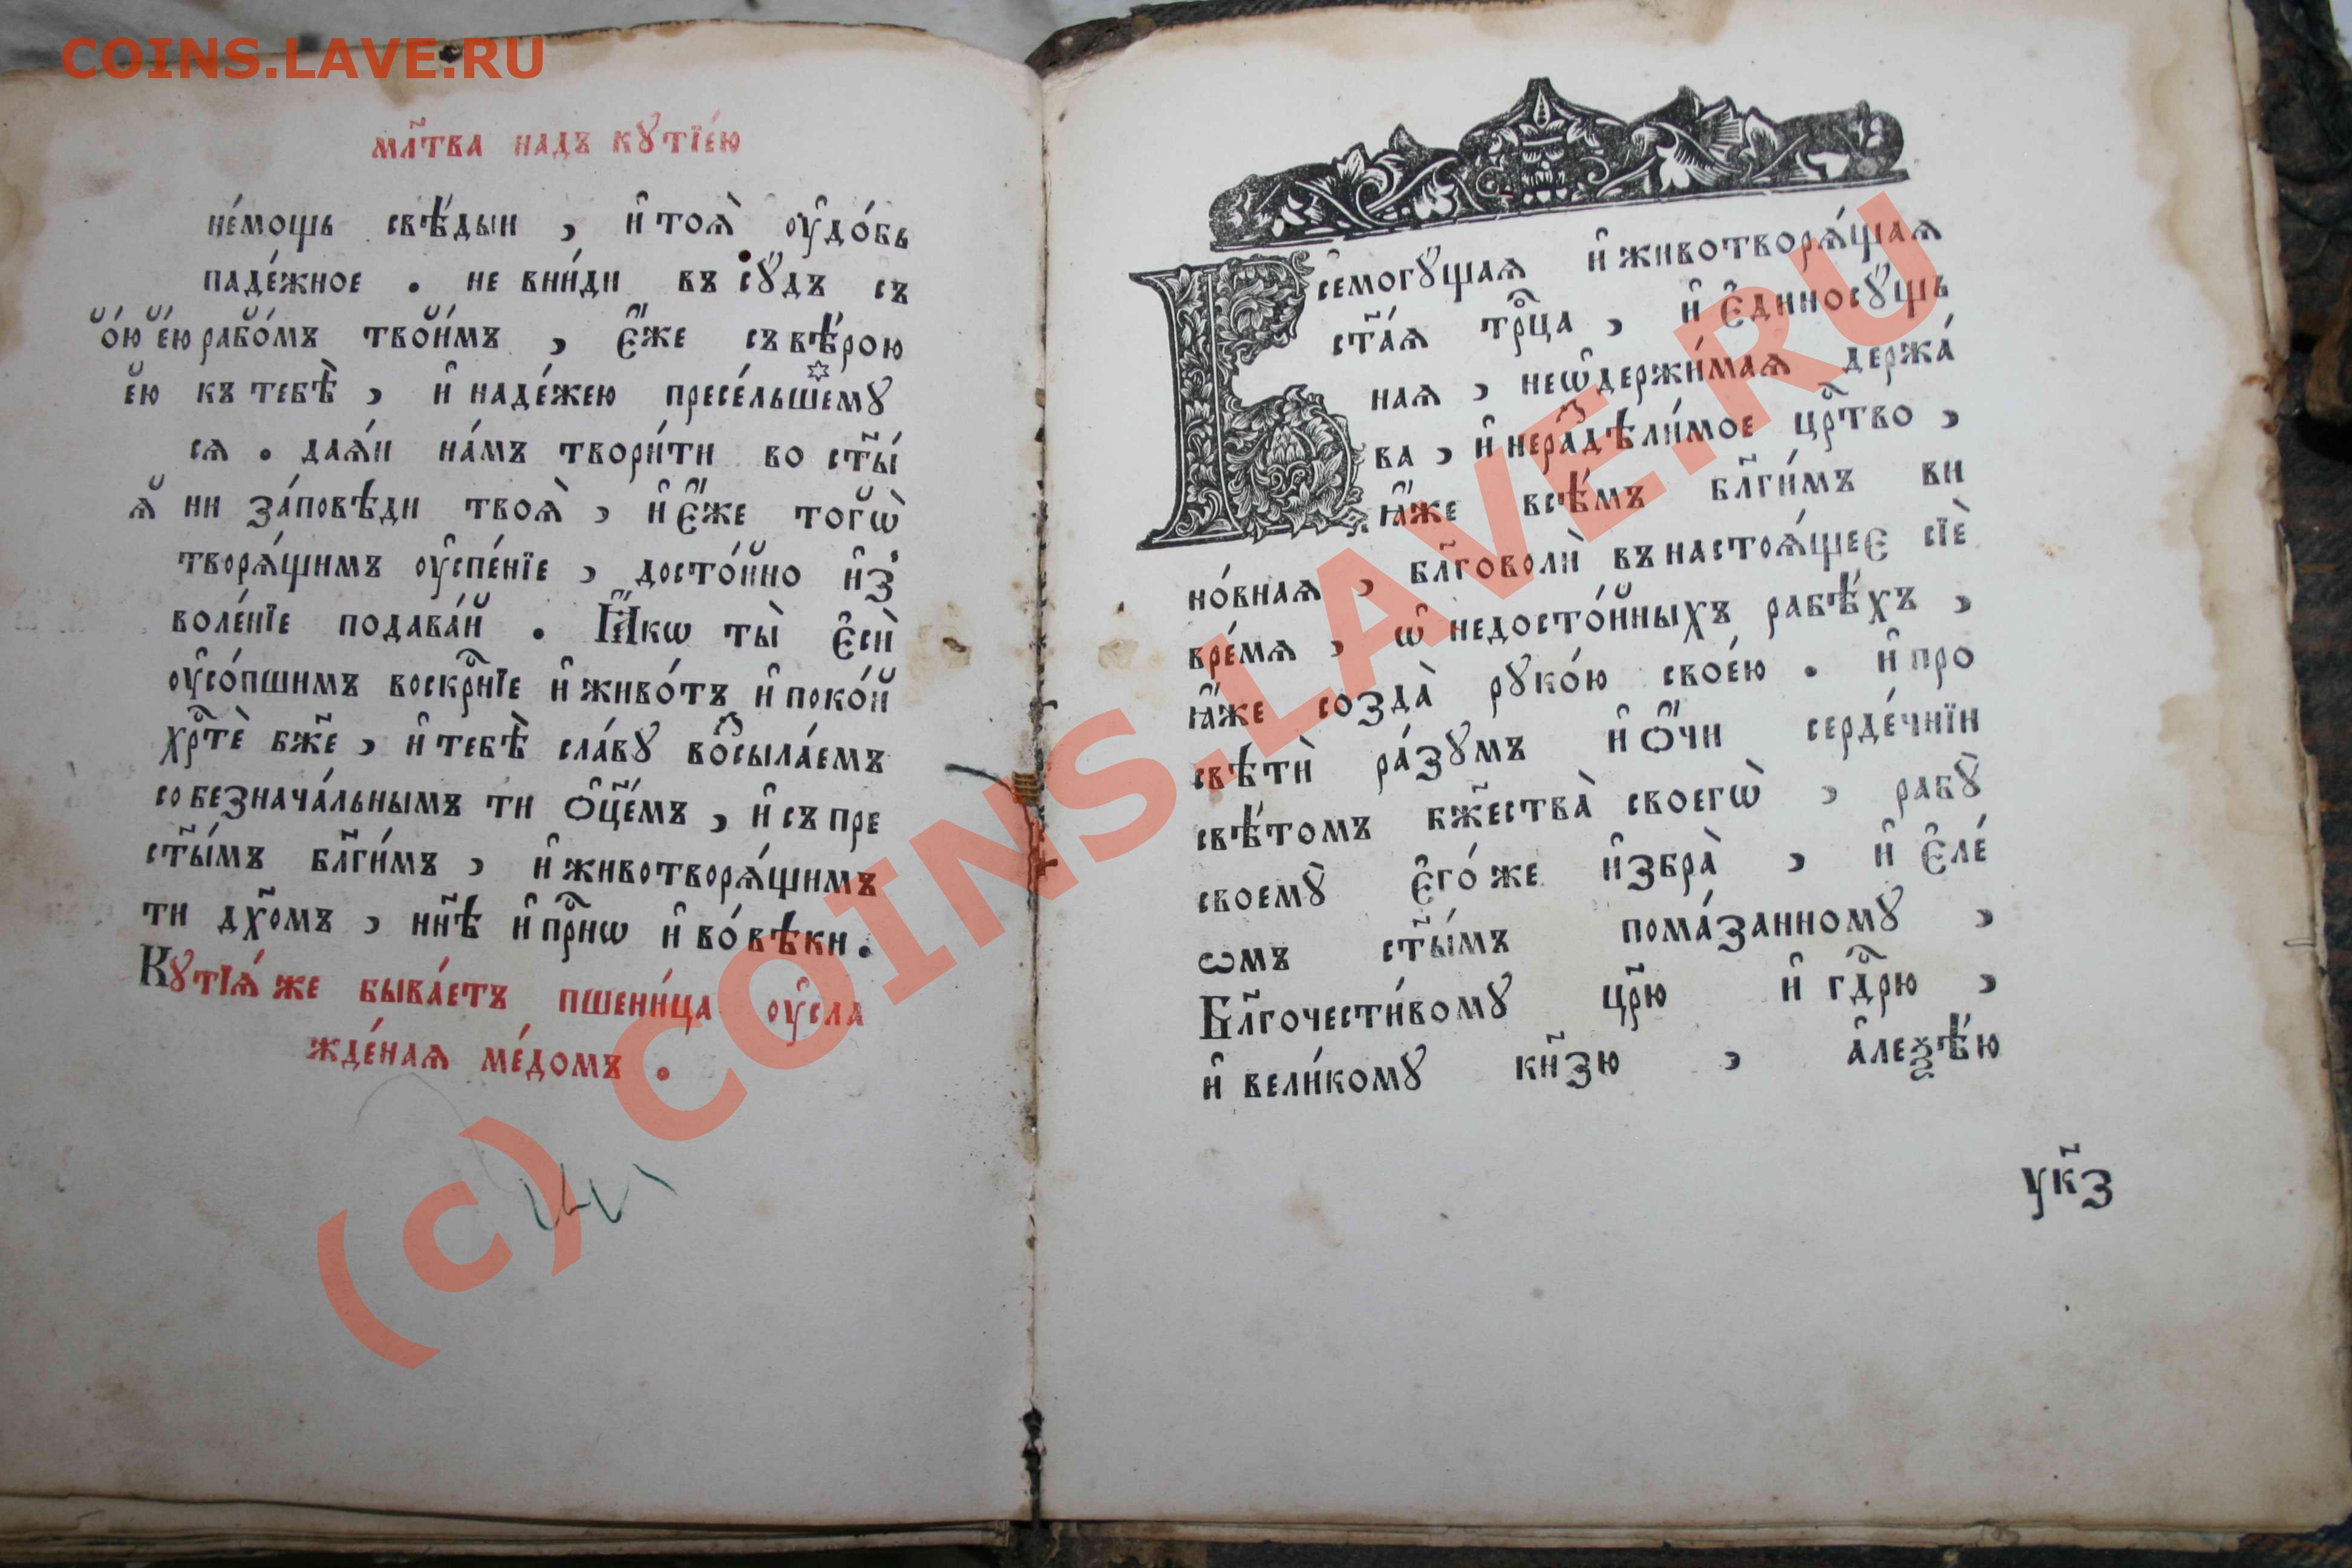 COINS.LAVE.RU
мл҃тва надъ кꙋтїе́ю
не́мощь свѣ́дыи , и҆ тоѧ̀ ᲂу҆до́бь
паде́жное . не вни́ди въ сꙋ́дъ съ
ѻю ею рабо́мъ твои́мъ , є҆́же съ вѣ́рою
ею къ тебѣ̀ , и҆ наде́жею пресе́льшемꙋ
сѧ . даѧ́и на́мъ твори́ти во ст҃ы́
ѧ ни за́повѣди твоѧ̀ , и҆ є҆́же тогѡ̀
творѧ́щимъ ᲂу҆спе́нїе , досто́йно и҆з̾
воле́нїе подава́й . Ꙗ҆́кѡ ты̀ є҆сѝ
ᲂу҆со́пшимъ воскрⷭ҇нїе и҆ живо́тъ и҆ поко́й
хрⷭ҇тѐ бж҃е , и҆ тебѣ̀ сла́вꙋ воⷥсыла́емъ
со безнача́льнымъ ти ѻ҆ц҃е́мъ , и҆ съ пре
ст҃ы́мъ бл҃ги́мъ , и҆ животворѧ́щимъ
ти дх҃омъ , нн҃ѣ и҆ прⷭ҇нѡ и҆ во́ вѣки .
Кꙋтїѧ́ же быва́етъ пшени́ца ᲂу҆сла
жде́наѧ ме́домъ .
Всемогꙋ́щаѧ и҆ животворѧ́щаѧ
ст҃а́ѧ трⷪ҇ца , и҆ є҆диносꙋ́щь
наѧ , неѡ҆держи́маѧ держа́
ва , и҆ нераⷥдѣли́мое црⷭ҇тво ,
ꙗ҆́же всѣ́мъ бл҃ги́мъ ви
но́внаѧ , бл҃говолѝ въ настоѧ́щеє сїѐ
вре́мѧ , ѡ҆ недосто́йныхъ рабѣ́хъ ,
ꙗ҆́же созда̀ рꙋко́ю свое́ю . и҆ про
свѣтѝ ра́зꙋмъ и҆ ѻ҆́чи серде́чнїи
свѣ́томъ бж҃ества̀ своегѡ̀ , рабꙋ̀
своемꙋ̀ є҆го́ же и҆збра̀ , и҆ є҆ле́
ѡмъ ст҃ы́мъ пома́занномꙋ ,
Бл҃гочести́вомꙋ цр҃ю и҆ гдⷭ҇рю ,
и҆ вели́комꙋ кн҃зю , а҆леѯѣ́ю
ук҃з
(c) COINS.LAVE.RU